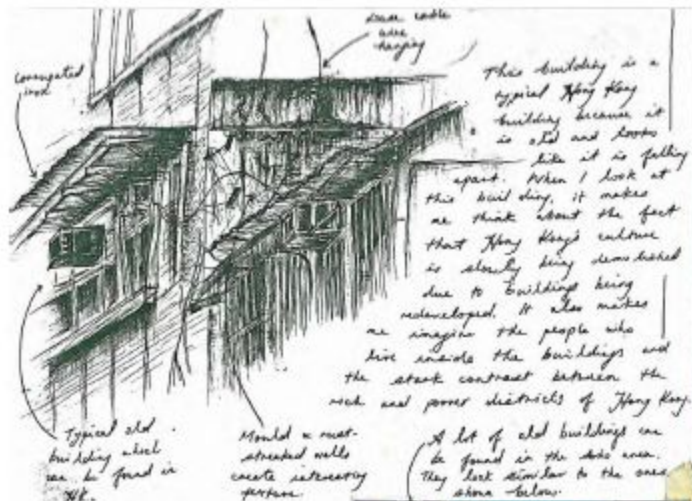 loose cable
wire
hanging
corrugated
iron
This building is a
typical Hong Kong
building because it
is old and looks
like it is falling
apart. When I look at
this building, it makes
me think about the fact
that Hong Kong's culture
is slowly being demolished
due to buildings being
redeveloped. It also makes
me imagine the people who
live inside the buildings and
the stark contrast between the
rich and poorer districts of Hong Kong.
Typical old
building which
can be found in
HK.
Mould & rust-
streaked walls
create interesting
texture.
A lot of old buildings can
be found in the area.
They look similar to the ones
shown below.